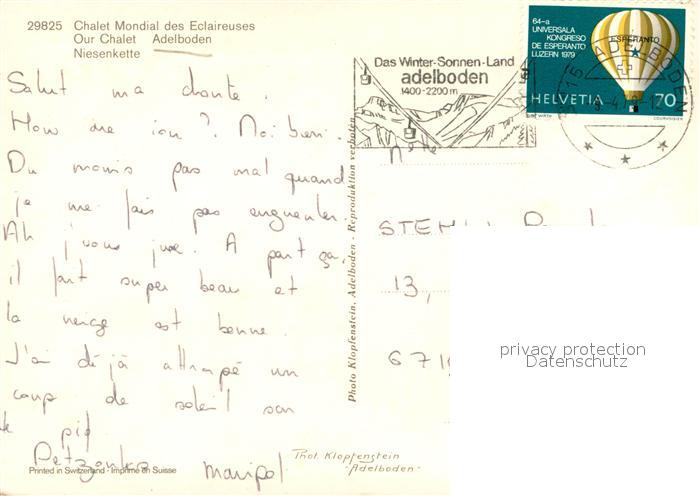 29825 Chalet Mondial des Eclaireuses
Our Chalet Adelboden
Niesenkette
Salut ma choute.
How are you? Moi bien.
Du moins pas mal quand
je me fais pas engueuler.
Ah j'vous jure. A part ça,
il fait super beau et
la neige est bonne.
J'ai déjà attrapé un
coup de soleil sur
le pif
Maripol
Printed in Switzerland - Imprimé en Suisse
Phot. Klopfenstein
-Adelboden-
Photo Klopfenstein, Adelboden - Reproduktion verboten
Das Winter-Sonnen-Land
adelboden
1400-2200 m
64-a
UNIVERSALA
KONGRESO
DE ESPERANTO
LUZERN 1979
ESPERANTO
HELVETIA 70
COURVOISIER
ADELBODEN
13,
privacy protection
Datenschutz